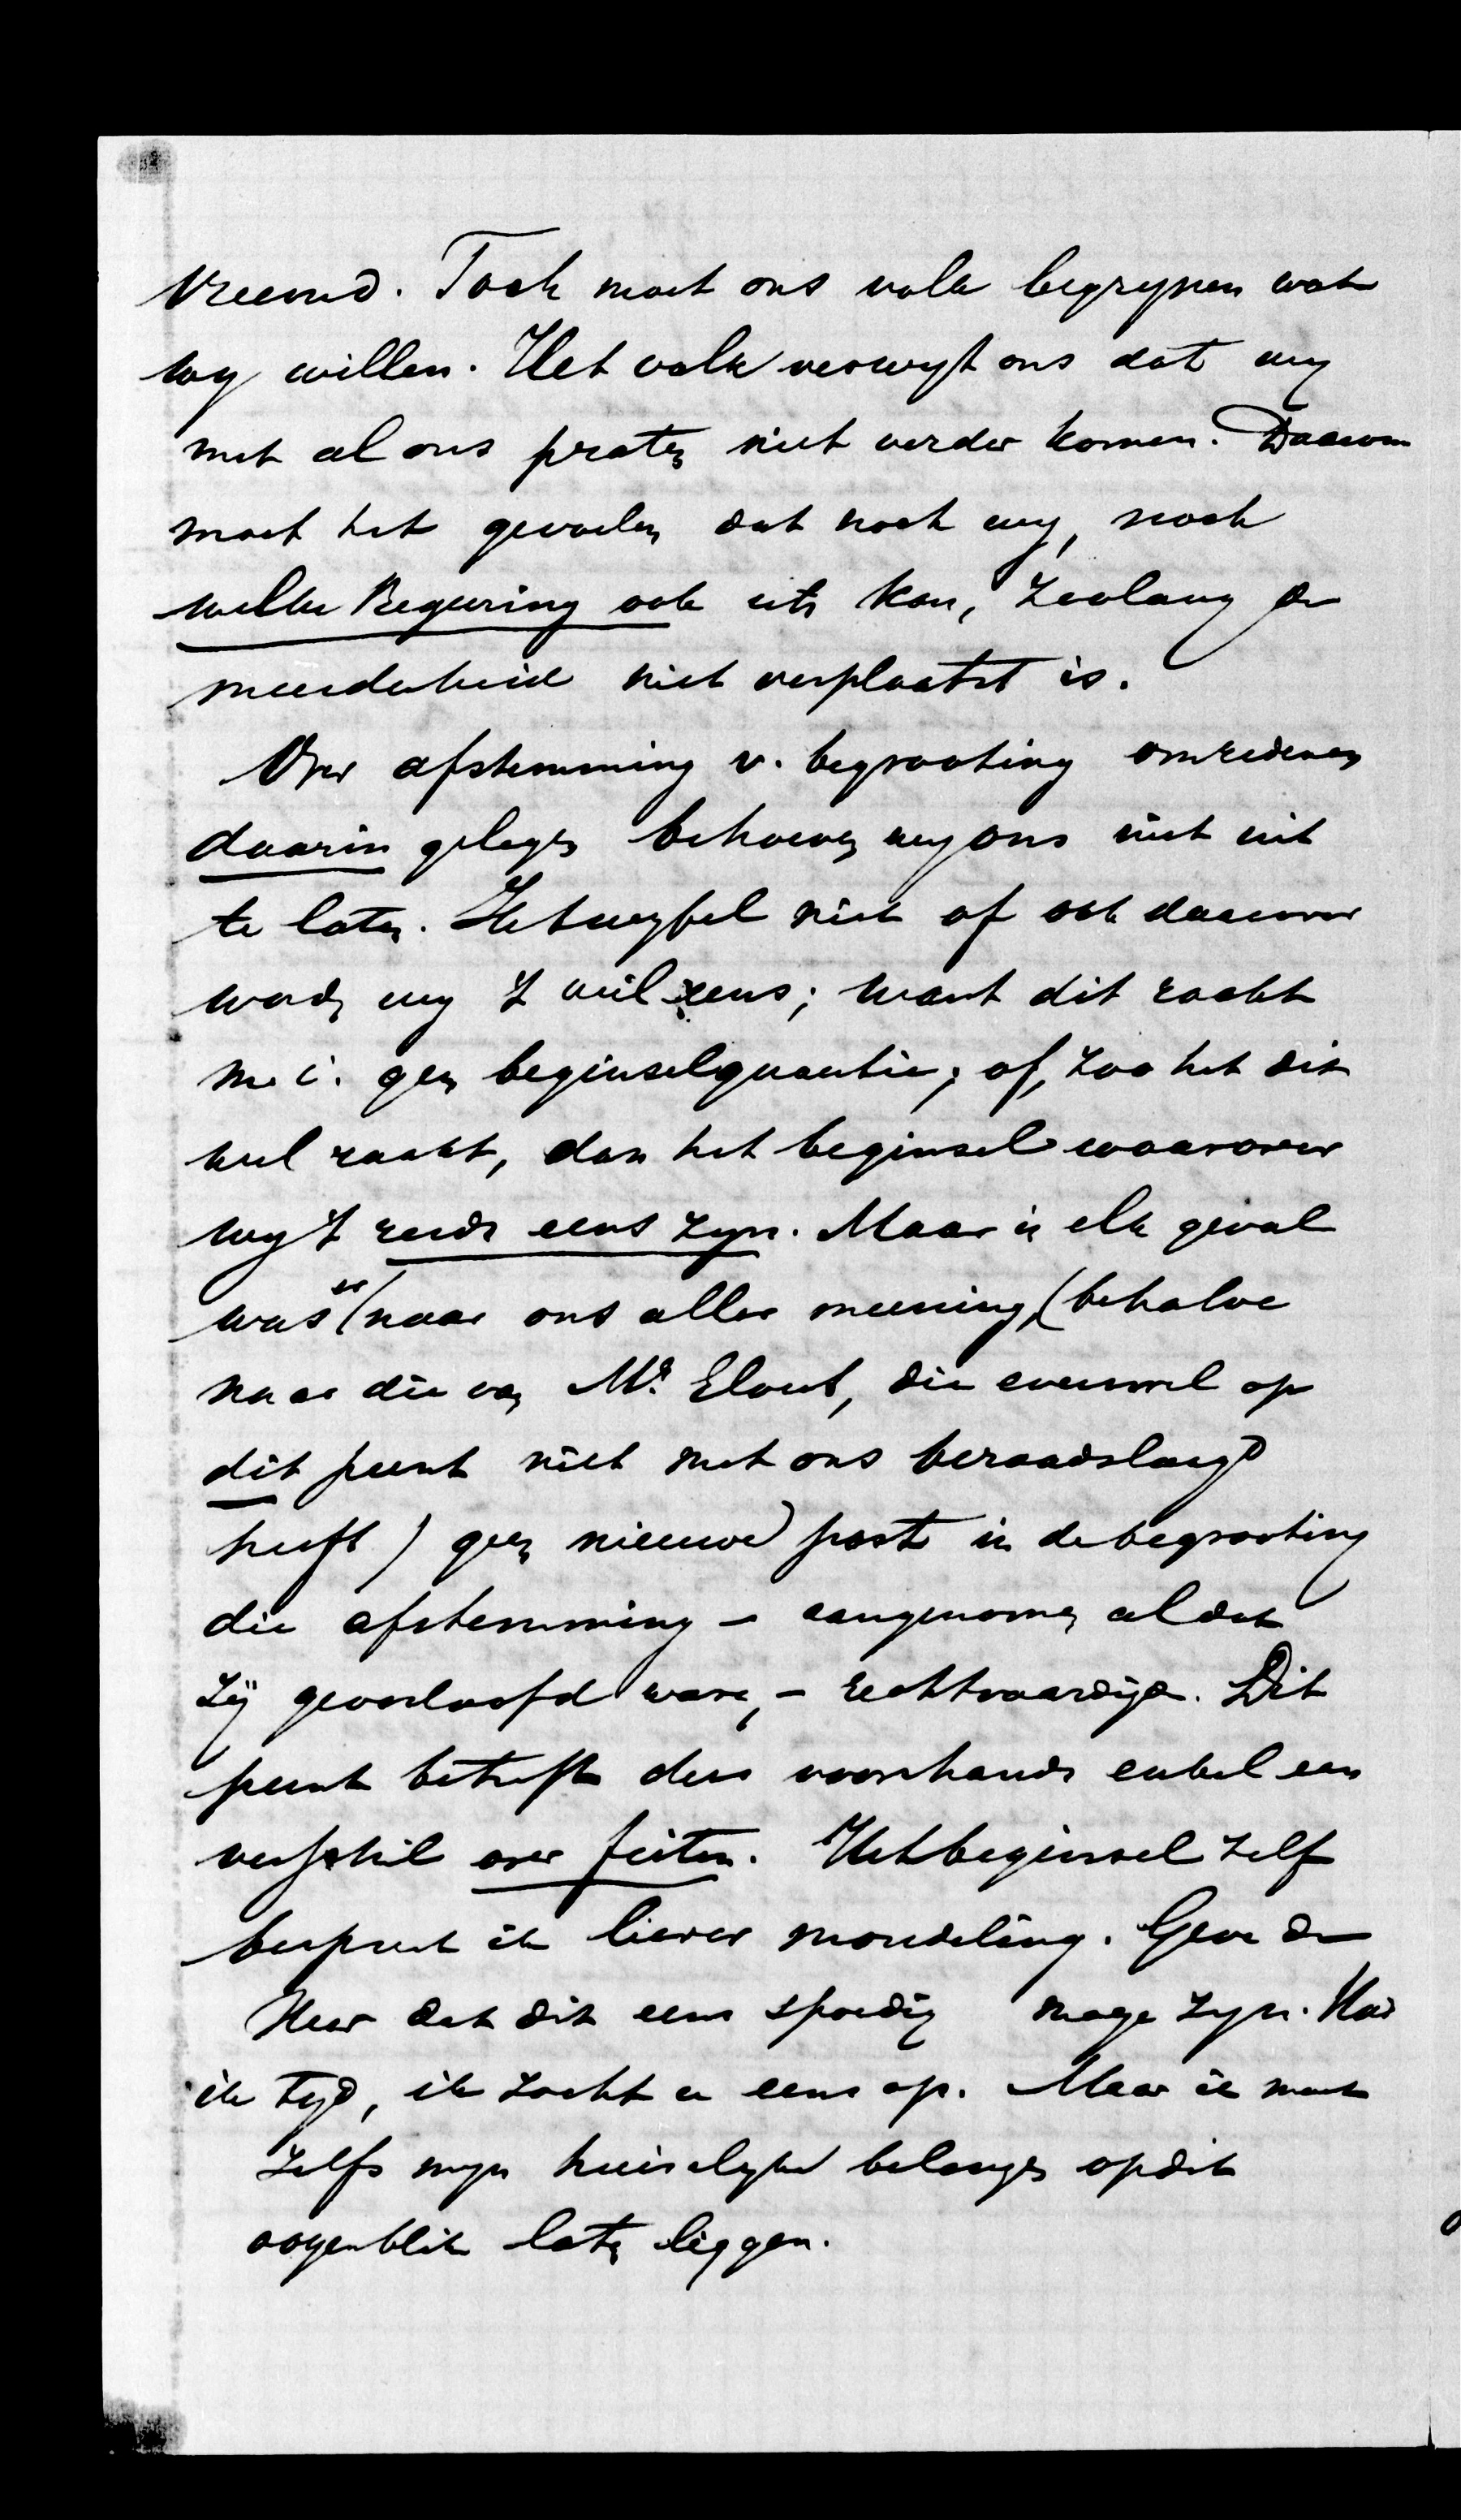 vreemd. Toch moet ons volk begrypen wat
wy willen. Het volk verwyt ons dat wy
met al ons praten niet verder komen. Daarom
moet het gevoelen dat noch wy, noch
welke Regeering ook iets kan, zoolang de
meerderheid niet verplaatst is.
Over afstemming v. begrooting om redenen
daarin gelegen behoeven wy ons niet uit
te laten. Ik twyfel niet of ook daarover
worden wy 't wel eens; want dit raakt
m. i. geen beginselquaestie; of, zoo het dit
wel raakt, dan het beginsel waarover
wy 't reeds eens zyn. Maar in elk geval
was er (naar ons aller meening, (behalve
naar die van Mr. Elout, die evenwel op
dit punt niet met ons beraadslaagd
heeft) geen nieuwe post in de begrooting
die afstemming – aangenomen al dat
zij geoorloofd ware, – rechtvaardigde. Dit
punt betreft dus voorshands enkel een
verschil over feiten. Het beginsel zelf
bespreek ik liever mondeling. Geve de
Heer dat dit eens spoedig moge zyn. Had
ik tyd, ik zocht u eens op. Maar ik moet
zelfs myn huiselyke belangen op dit
oogenblik laten liggen.